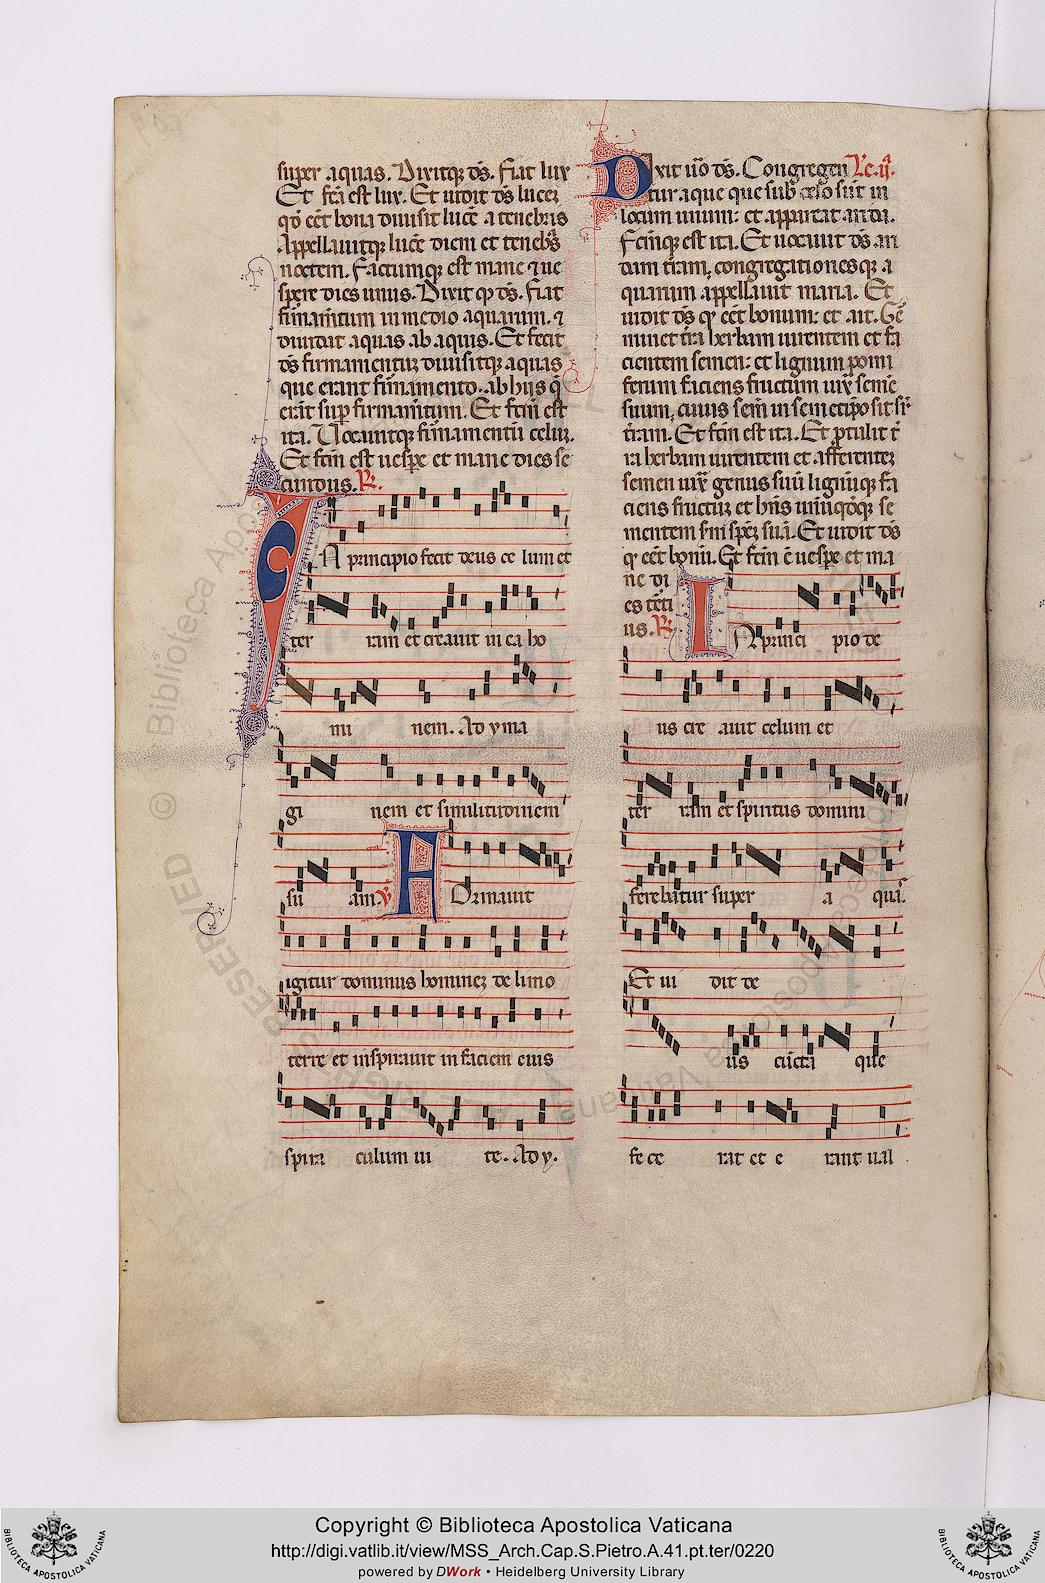 super aquas. Dixitq; ds̄. Fiat lux
Et fc̄a est lux. Et uidit ds̄ lucez
qd̄ eēt bona diuisit lucē a tenebris
Appellauitq; lucē diem et tenebs̄
noctem. Factumq; est mane ⁊ ue
spere dies unus. Dixit q; ds̄. Fiat
firmam̄tum in medio aquarum. ⁊
diuidat aquas ab aquis. Et fecit
ds̄ firmamentuz diuisitq; aquas
que erant firmamento. ab hijs q̄
erāt sup firmam̄tum. Et fc̄m est
ita. Uocauitq; firmamentū celuz.
Et fc̄m est uespe et mane dies se
cundus. R̷.
IN principio fecit deus ce lum et
ter ram et creauit in ea ho
mi nem. Ad yma
gi nem et similitudinem
su am. V̷ FOrmauit
igitur dominus hominez de limo
terre et inspirauit in faciem eius
spira culum ui te. Ad y.
DIxit u̅o ds̄. Congregen Le.ij.
tur aque que sub celo sūt in
locum unum: et appareat arida.
Fc̄mq; est ita. Et uocauit ds̄ ari
dam t̄ram, congregationesq; a
quarum appellauit maria. Et
uidit ds̄ q; eēt bonum: et ait. Ge
minet t̄ra herbam uirentem et fa
cientem semen: et lignum pomi
ferum faciens fructum iux̄ genus
suum, cuius sem̄ in semetipo sit sr̄
t̄ram. Et fc̄m est ita. Et ꝓtulit t̄
ra herbam uirentem et afferentez
semen iux̄ genus suū lignūq; fa
ciens fructuz et hn̄s unūqdq; se
mentem sm̄ spēz suā. Et uidit ds̄
q; eēt bonū. Et fc̄m ē uespe et ma
ne di
es terti
us. R̷.
IN princi pio de
us cre auit celum et
ter ram et spiritus domini
ferebatur super a quas.
Et ui dit de
us cūcta que
fe ce rat et e rant ual
Copyright © Biblioteca Apostolica Vaticana
http://digi.vatlib.it/view/MSS_Arch.Cap.S.Pietro.A.41.pt.ter/0220
powered by DWork • Heidelberg University Library